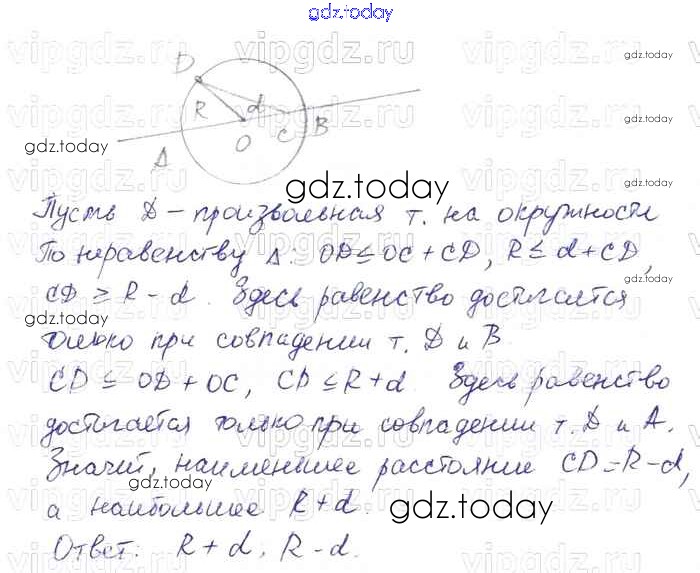 gdz.today
vipgdz.ru vipgdz.ru vipgdz.ru
gdz.today
D
R d
A O C B
gdz.today
gdz.today
gdz.today
Пусть D – произвольная т. на окружности
По неравенству Δ: OD ≤ OC + CD, R ≤ d + CD,
gdz.today
CD ≥ R – d. Здесь равенство достигается
gdz.today
только при совпадении т. D и B
CD ≤ OD + OC, CD ≤ R + d. Здесь равенство
достигается только при совпадении т. D и A.
Значит, наименьшее расстояние CD = R – d,
gdz.today
а наибольшее R + d.
gdz.today
Ответ: R + d, R – d.